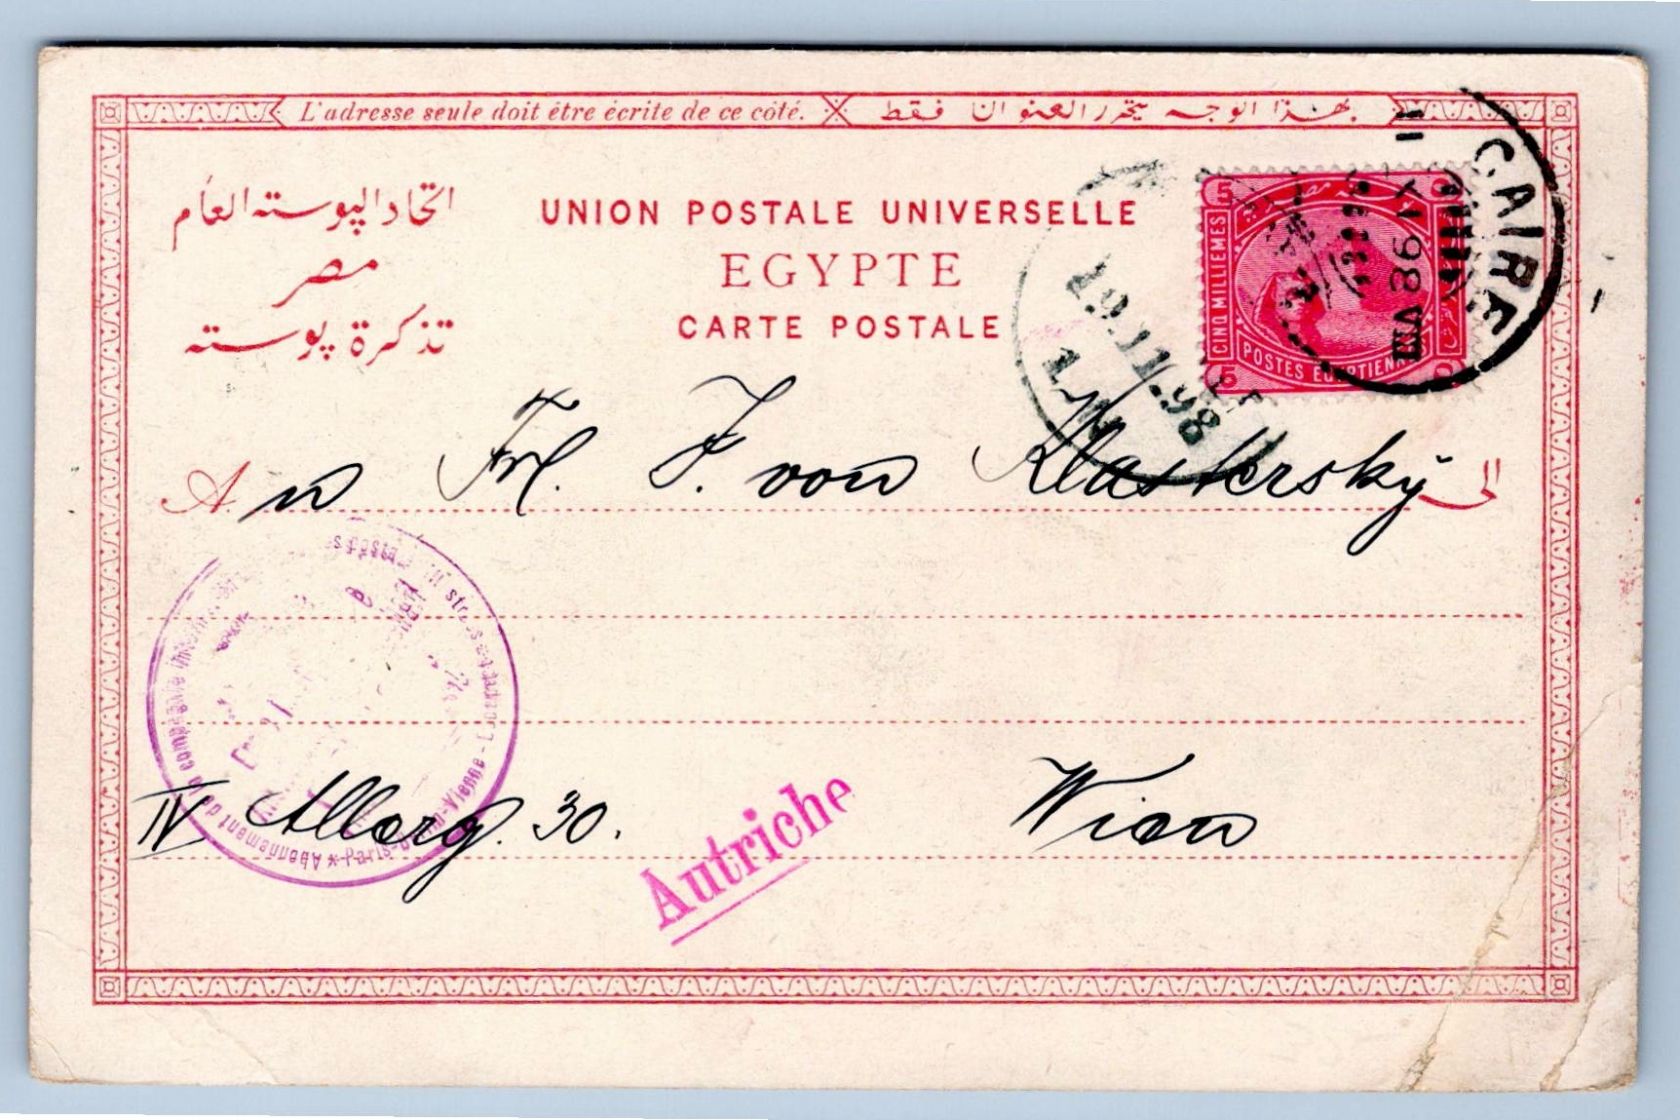 L'adresse seule doit être écrite de ce côté.
بهذا الوجه يحرر العنوان فقط
اتحاد البوسته العام
مصر
تذكرة بوسته
UNION POSTALE UNIVERSELLE
EGYPTE
CARTE POSTALE
5
CINQ MILLIEMES
POSTES EGYPTIENNES
5
CAIRE
VIII 98
19.11.98
An Frl. J. von Klastersky الى
Abonnement de la compagnie
Paris-Vienne-Londres
IV Alleeg. 30. Wien
Autriche